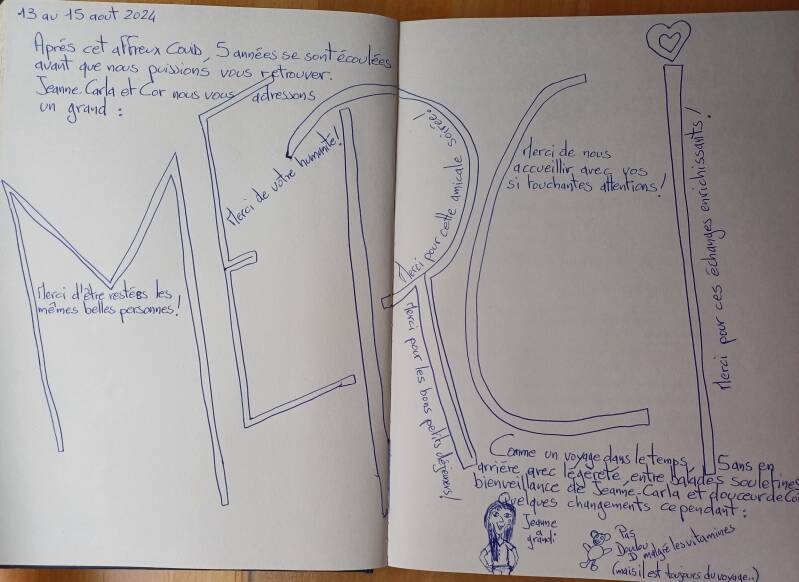 13 au 15 aout 2024
Après cet affreux Covid, 5 années se sont écoulées
avant que nous puissions vous retrouver.
Jeanne-Carla et Cor nous vous adressons
un grand :
MERCI
Merci d'être restées les
mêmes belles personnes!
Merci de votre humanité!
Merci pour cette amicale soirée!
Merci pour les bons petits déjeuners!
Merci de nous
accueillir avec vos
si touchantes attentions!
Merci pour ces échanges enrichissants!
Comme un voyage dans le temps, 5 ans en
arrière, avec légèreté, entre balades souletines
bienveillance de Jeanne-Carla et douceur de Cor
Quelques changements cependant :
Jeanne
a
grandi
Pas
Doudou
malgré les vitamines
(mais il est toujours du voyage..)